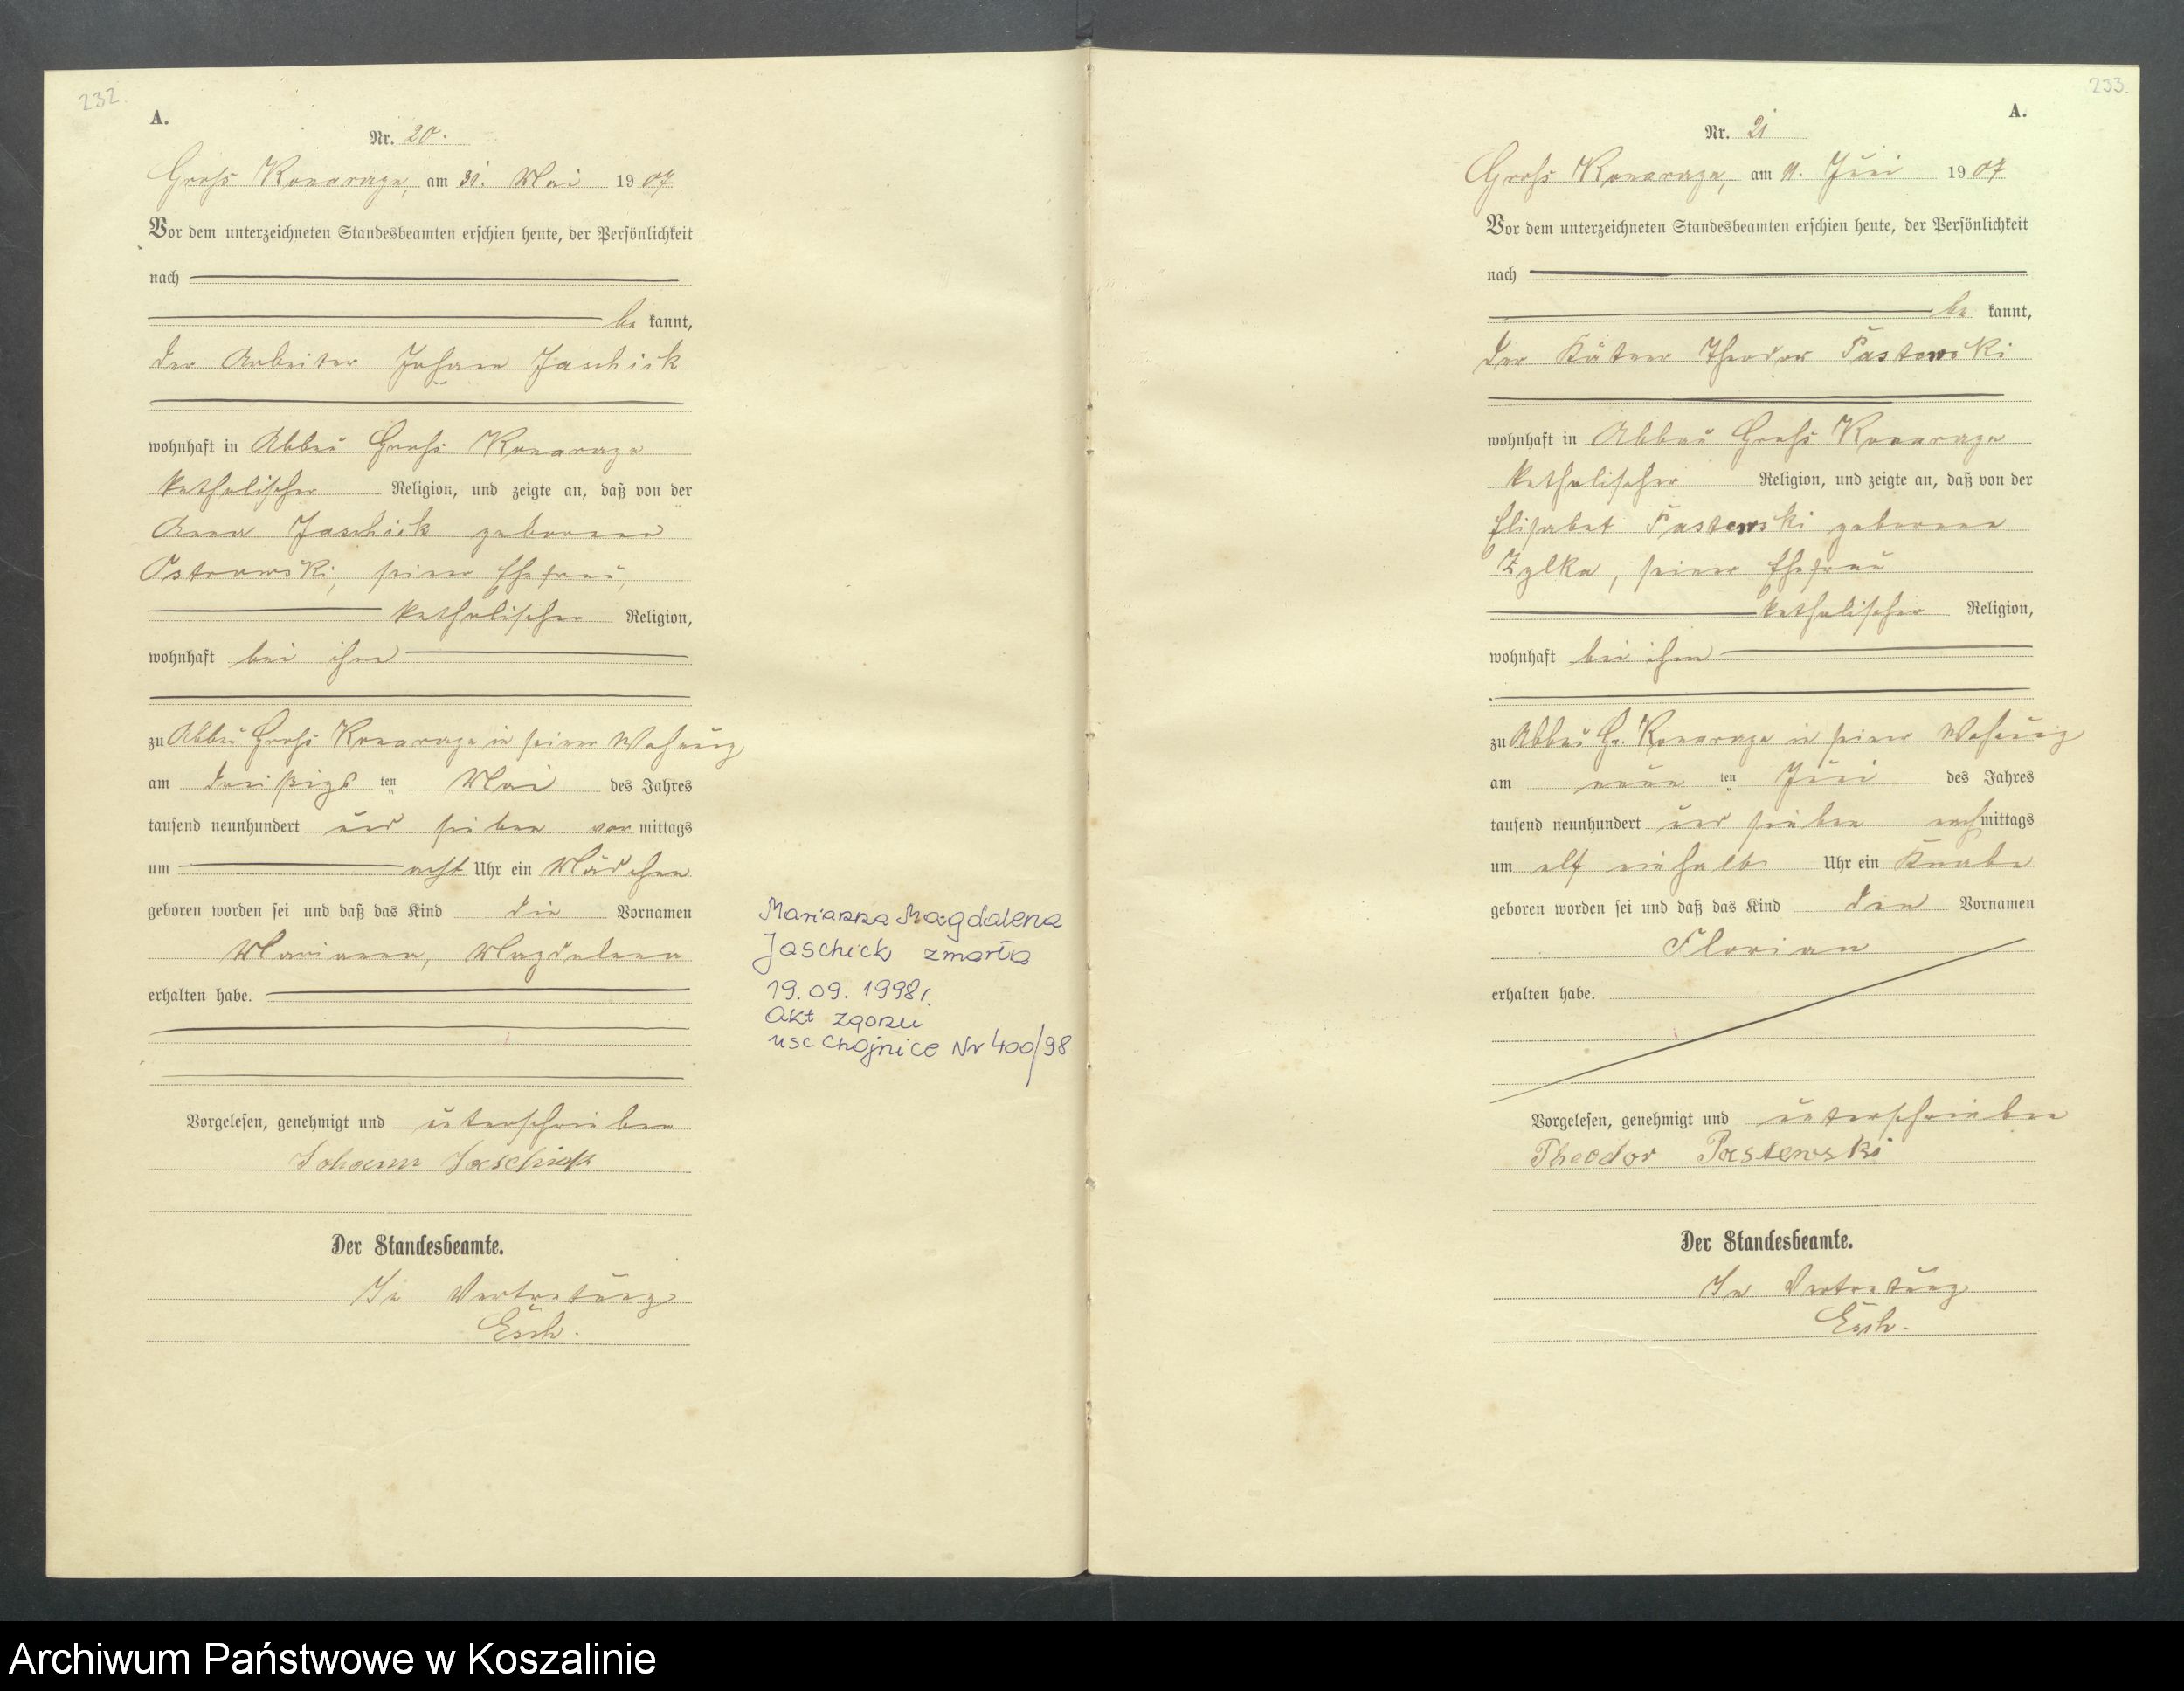 232.
A.
Nr. 20.
Gross Konarczyn, am 31. Mai 1907
Vor dem unterzeichneten Standesbeamten erschien heute, der Persönlichkeit
nach
be kannt,
der Arbeiter Johann Jaschick
wohnhaft in Abbau Gross
katholischer Religion, und zeigte an, daß von der
Anna Jaschick geborene
Ostrowski, seiner Ehefrau,
katholischer Religion,
wohnhaft bei ihm
zu Abbau Gross in seiner Wohnung
am dreißigs ten Mai des Jahres
tausend neunhundert und sieben vor mittags
um acht Uhr ein Mädchen
geboren worden sei und daß das Kind die Vornamen
Marianna, Magdalena
erhalten habe.
Vorgelesen, genehmigt und unterschrieben
Johann Jaschick
Der Standesbeamte.
In Vertretung
Esch.
Marianna Magdalena
Jaschick zmarła
19.09.1998r.
Akt zgonu
usc Chojnice Nr 400/98
233.
A.
Nr. 21
Gross am 11. Juni 1907
Vor dem unterzeichneten Standesbeamten erschien heute, der Persönlichkeit
nach
be kannt,
der Kätner Theodor Pastewski
wohnhaft in Abbau Gross
katholischer Religion, und zeigte an, daß von der
Elisabet Pastewski geborene
Zylka, seiner Ehefrau
katholischer Religion,
wohnhaft bei ihm
zu Abbau Gr. in seiner Wohnung
am neun ten Juni des Jahres
tausend neunhundert und sieben nach mittags
um elf einhalb Uhr ein Knabe
geboren worden sei und daß das Kind den Vornamen
Florian
erhalten habe.
Vorgelesen, genehmigt und unterschrieben
Theodor Pastewski
Der Standesbeamte.
In Vertretung
Esch.
Archiwum Państwowe w Koszalinie